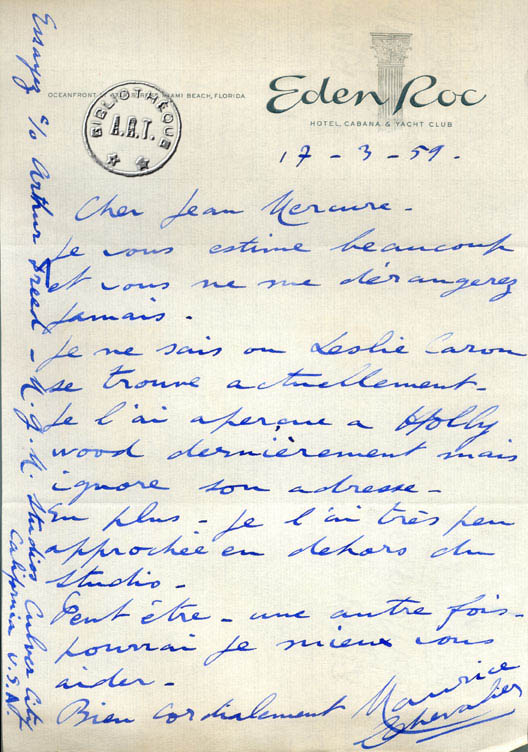 Eden Roc
OCEANFRONT AT STREETS, MIAMI BEACH, FLORIDA
HOTEL, CABANA & YACHT CLUB
BIBLIOTHÈQUE
A.R.T.
17-3-59.
Cher Jean Mercure -
Je vous estime beaucoup
et vous ne me dérangerez
jamais.
Je ne sais ou Leslie Caron
se trouve actuellement -
Je l'ai aperçue a Holly
wood dernièrement mais
ignore son adresse -
En plus - je l'ai très peu
approchée en dehors du
studio -
Peut être - une autre fois -
pourrai je mieux vous
aider -
Bien cordialement Maurice
Chevalier
Essayez c/o Arthur Freed - M.G.M. Studios Culver City
California U.S.A.